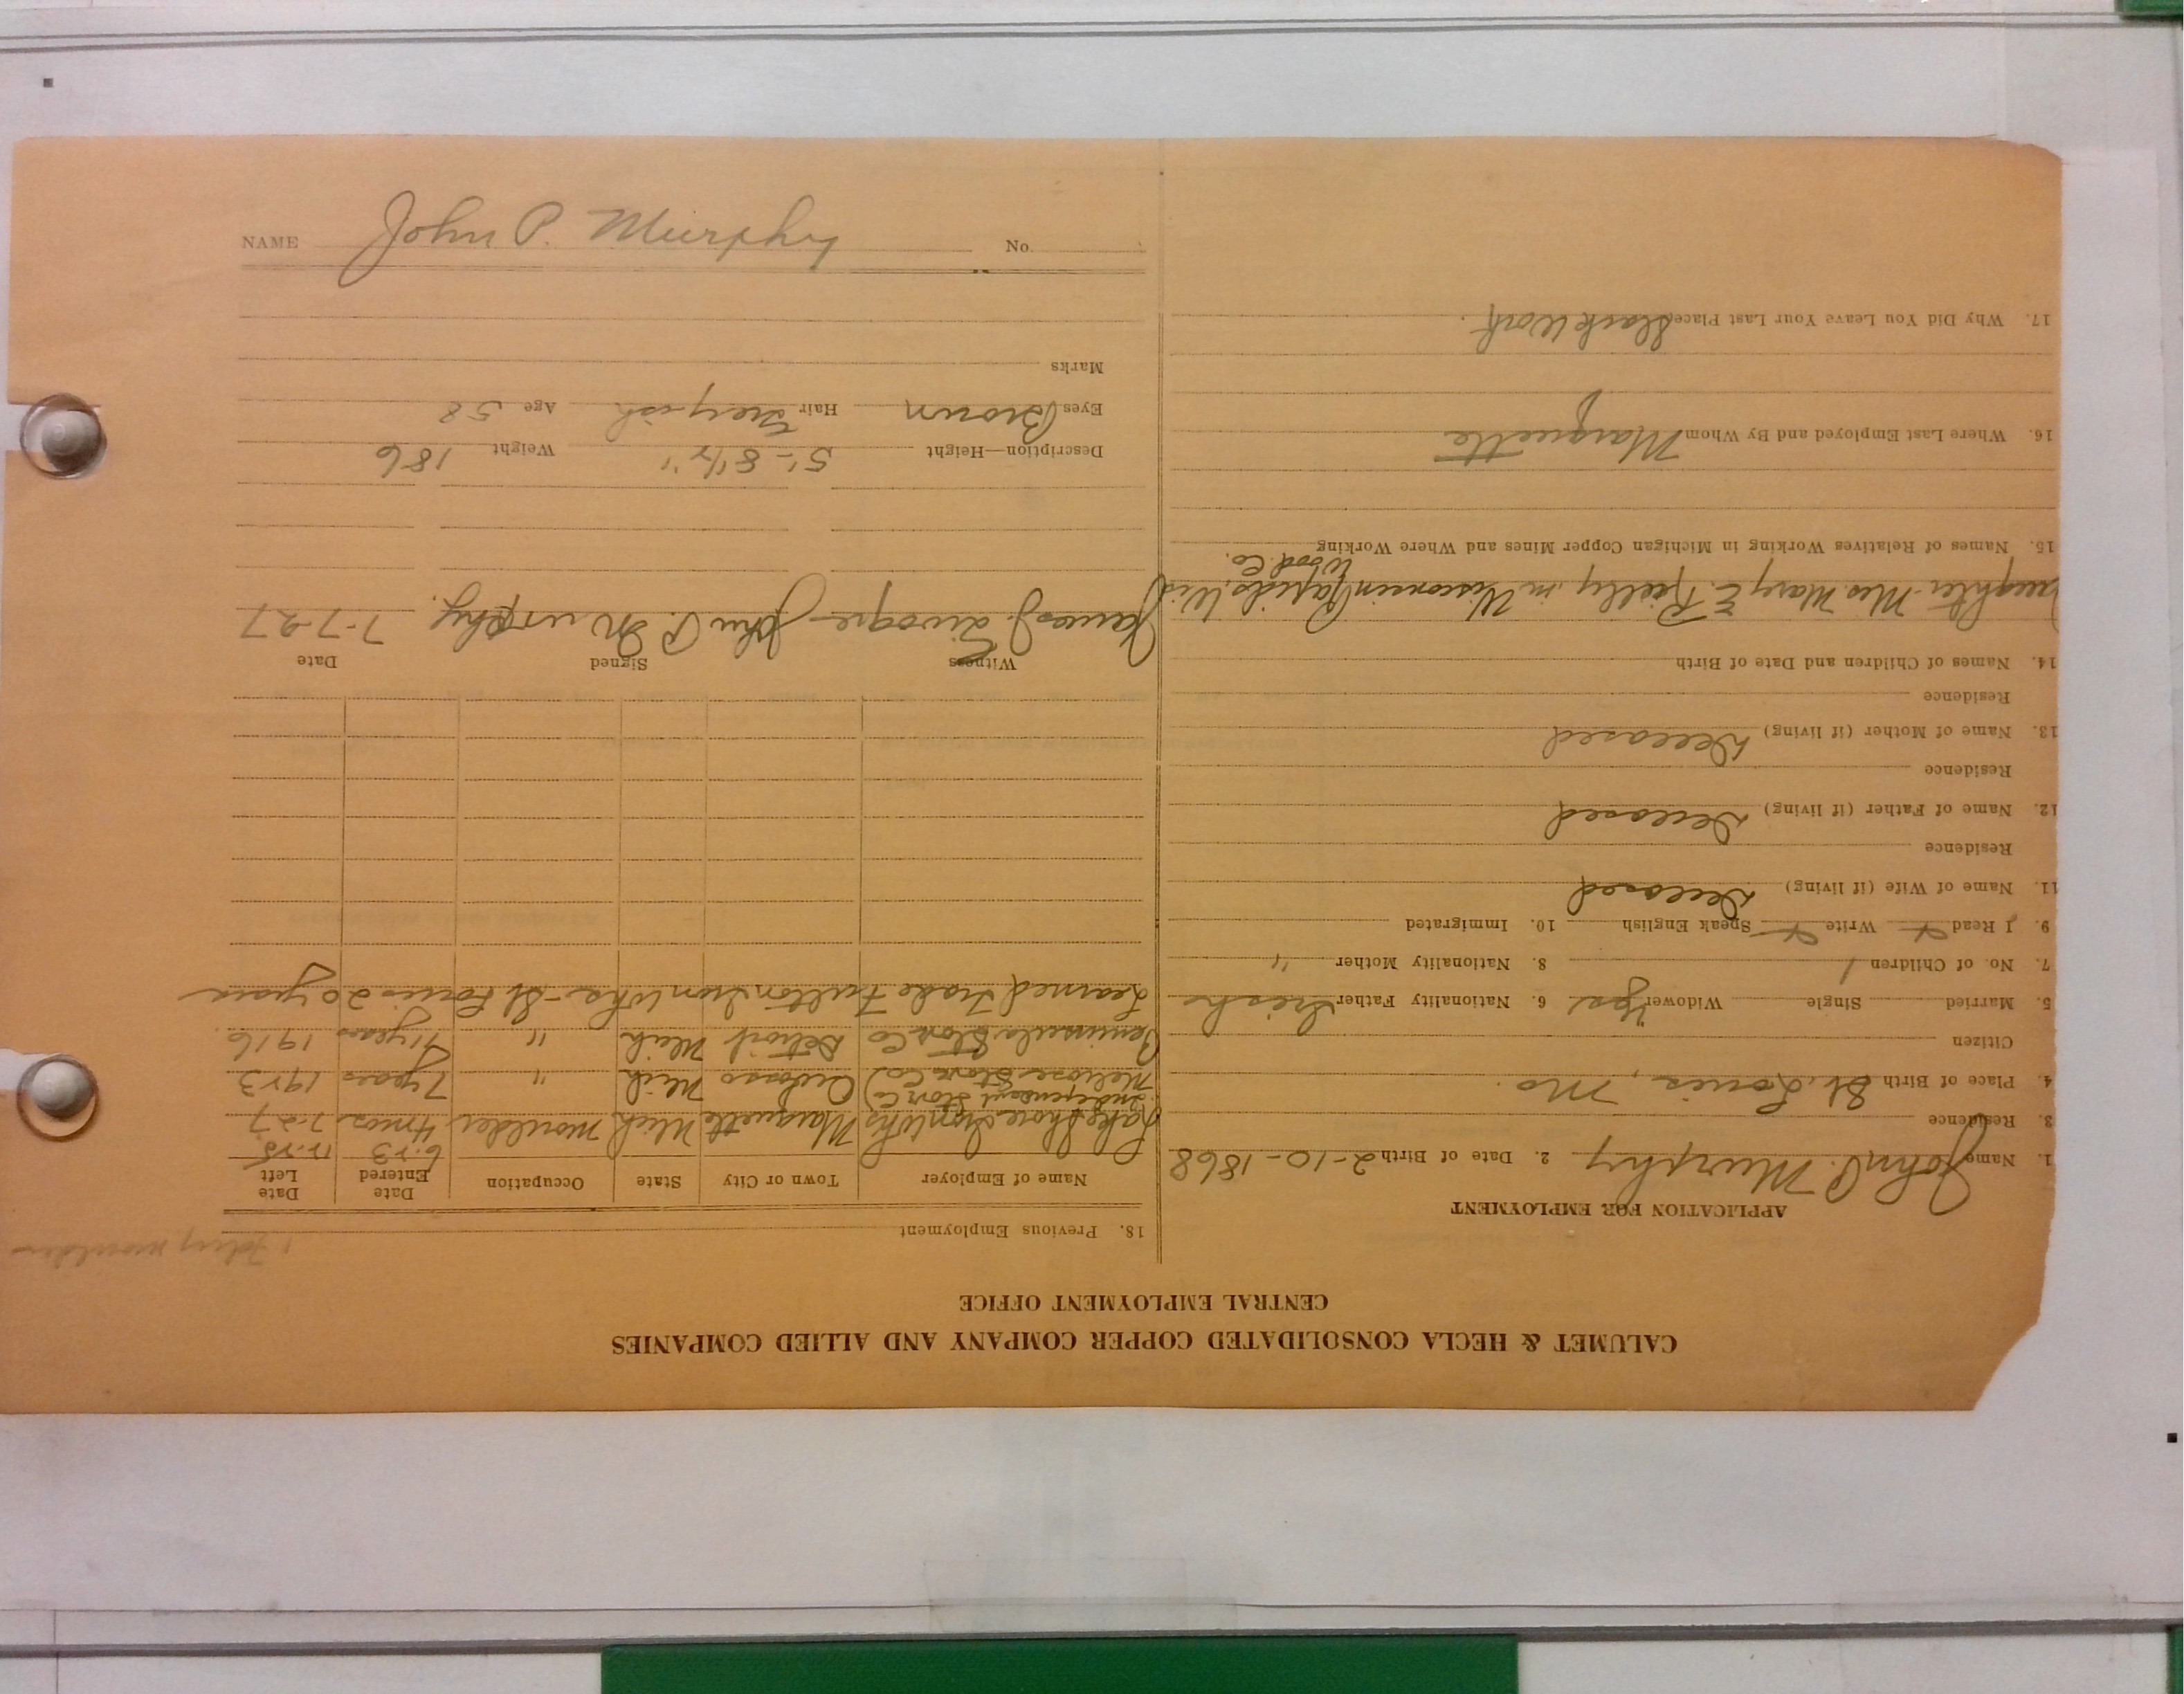 CALUMET & HECLA CONSOLIDATED COPPER COMPANY AND ALLIED COMPANIES
CENTRAL EMPLOYMENT OFFICE
APPLICATION FOR EMPLOYMENT
1. Name John P. Murphy 2. Date of Birth 2-10-1868
3. Residence
4. Place of Birth St. Louis, Mo.
Citizen
5. Married Single Widower Yes 6. Nationality Father Irish
7. No. of Children 1 8. Nationality Mother "
9. I Read Write Speak English 10. Immigrated
11. Name of Wife (if living) Deceased
Residence
12. Name of Father (if living) Deceased
Residence
13. Name of Mother (if living) Deceased
Residence
14. Names of Children and Date of Birth
Daughter-Mrs. Mary E. Reilly in Wisconsin Rapids, Wis
Wood Co.
15. Names of Relatives Working in Michigan Copper Mines and Where Working
16. Where Last Employed and By Whom Marquette
17. Why Did You Leave Your Last Place Slack Work.
18. Previous Employment
moulder
Name of Employer Town or City State Occupation Date Entered Date Left
6-23 12-25
Lake Shore Iron Wks Marquette Mich moulder 4 mos. 7-27
Independent Stove Co)
Melrose Stove Co) Owosso Mich " 7 years 1923
Peninsula Stove Co Detroit Mich " years 1916
Learned trade Fulton Iron Wks - St Louis 20 years
Witness Signed Date
James J. John P. Murphy. 7-7-27
Description—Height 5'-8 1/2" Weight 186
Eyes Brown Hair Greyish Age 58
Marks
NAME John P. Murphy No.